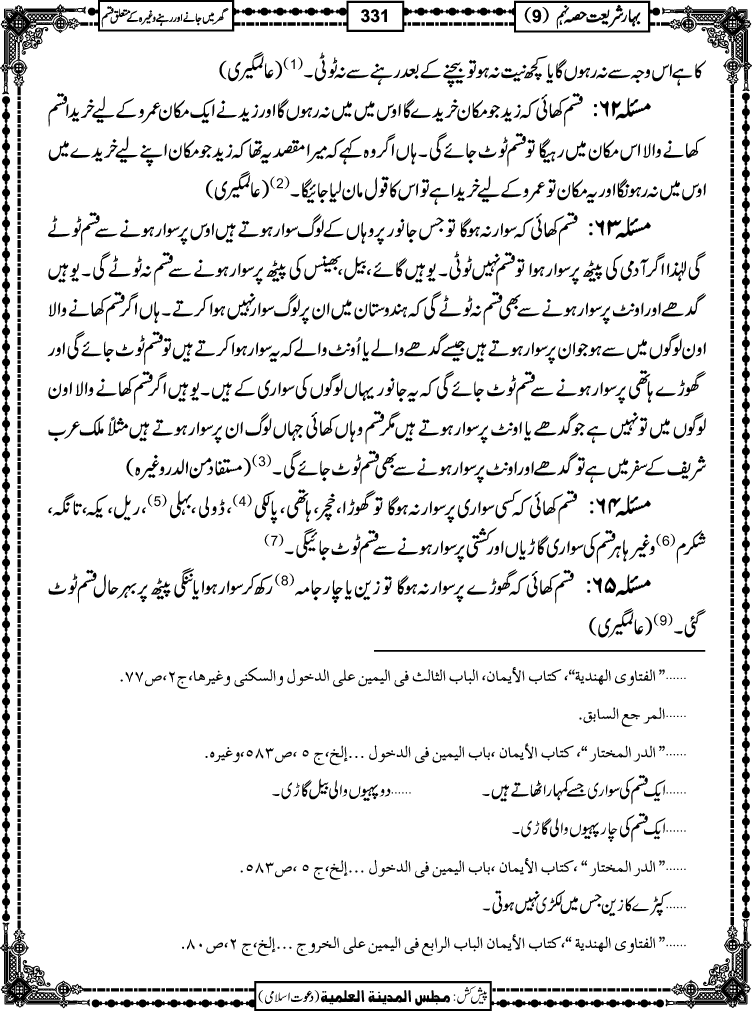 بہارِ شریعت حصہ نہم (9)
331
گھر میں جانے اور رہنے وغیرہ کے متعلق قسم
کا ہے اس وجہ سے نہ رہوں گا یا کچھ نیت نہ ہو تو بیچنے کے بعد رہنے سے نہ ٹوٹی۔(1) (عالمگیری)
مسئلہ ۶۲: قسم کھائی کہ زید جو مکان خریدے گا اوس میں میں نہ رہوں گا اور زید نے ایک مکان عمرو کے لیے خریدا قسم
کھانے والا اس مکان میں رہیگا تو قسم ٹوٹ جائے گی۔ ہاں اگر وہ کہے کہ میرا مقصد یہ تھا کہ زید جو مکان اپنے لیے خریدے میں
اوس میں نہ رہونگا اور یہ مکان تو عمرو کے لیے خریدا ہے تو اس کا قول مان لیا جائیگا۔(2) (عالمگیری)
مسئلہ ۶۳: قسم کھائی کہ سوار نہ ہوگا تو جس جانور پر وہاں کے لوگ سوار ہوتے ہیں اوس پر سوار ہونے سے قسم ٹوٹے
گی لہٰذا اگر آدمی کی پیٹھ پر سوار ہوا تو قسم نہیں ٹوٹی۔ یوہیں گائے، بیل، بھینس کی پیٹھ پر سوار ہونے سے قسم نہ ٹوٹے گی۔ یوہیں
گدھے اور اونٹ پر سوار ہونے سے بھی قسم نہ ٹوٹے گی کہ ہندوستان میں ان پر لوگ سوار نہیں ہوا کرتے۔ ہاں اگر قسم کھانے والا
اون لوگوں میں سے ہو جو ان پر سوار ہوتے ہیں جیسے گدھے والے یا اُونٹ والے کہ یہ سوار ہوا کرتے ہیں تو قسم ٹوٹ جائے گی اور
گھوڑے ہاتھی پر سوار ہونے سے قسم ٹوٹ جائے گی کہ یہ جانور یہاں لوگوں کی سواری کے ہیں۔ یوہیں اگر قسم کھانے والا اون
لوگوں میں تو نہیں ہے جو گدھے یا اونٹ پر سوار ہوتے ہیں مگر قسم وہاں کھائی جہاں لوگ ان پر سوار ہوتے ہیں مثلاً ملک عرب
شریف کے سفر میں ہے تو گدھے اور اونٹ پر سوار ہونے سے بھی قسم ٹوٹ جائے گی۔(3) (مستفاد من الدر وغیرہ)
مسئلہ ۶۴: قسم کھائی کہ کسی سواری پر سوار نہ ہوگا تو گھوڑا، خچر، ہاتھی، پالکی(4)، ڈولی، بہلی(5)، ریل، یکہ، تانگہ،
شکرم(6) وغیرہا ہر قسم کی سواری گاڑیاں اور کشتی پر سوار ہونے سے قسم ٹوٹ جائیگی۔(7)
مسئلہ ۶۵: قسم کھائی کہ گھوڑے پر سوار نہ ہوگا تو زین یا چار جامہ(8) رکھ کر سوار ہوا یا ننگی پیٹھ پر بہرحال قسم ٹوٹ
گئی۔(9) (عالمگیری)
......”الفتاوی الهندية“، كتاب الأيمان، الباب الثالث فى اليمين على الدخول والسكنى وغيرها، ج٢، ص٧٧.
......المرجع السابق.
......”الدر المختار“، كتاب الأيمان، باب اليمين فى الدخول ...إلخ، ج ٥، ص٥٨٣، وغيره.
......ایک قسم کی سواری جسے کمہار اٹھاتے ہیں۔ ......دو پہیوں والی بیل گاڑی۔
......ایک قسم کی چار پہیوں والی گاڑی۔
......”الدر المختار“، كتاب الأيمان، باب اليمين فى الدخول ...إلخ، ج ٥، ص٥٨٣.
......کپڑے کا زین جس میں لکڑی نہیں ہوتی۔
......”الفتاوى الهندية“، كتاب الأيمان الباب الرابع فى اليمين على الخروج ...إلخ، ج ٢، ص٨٠.
پیش کش: مجلس المدينة العلمية (دعوت اسلامی)